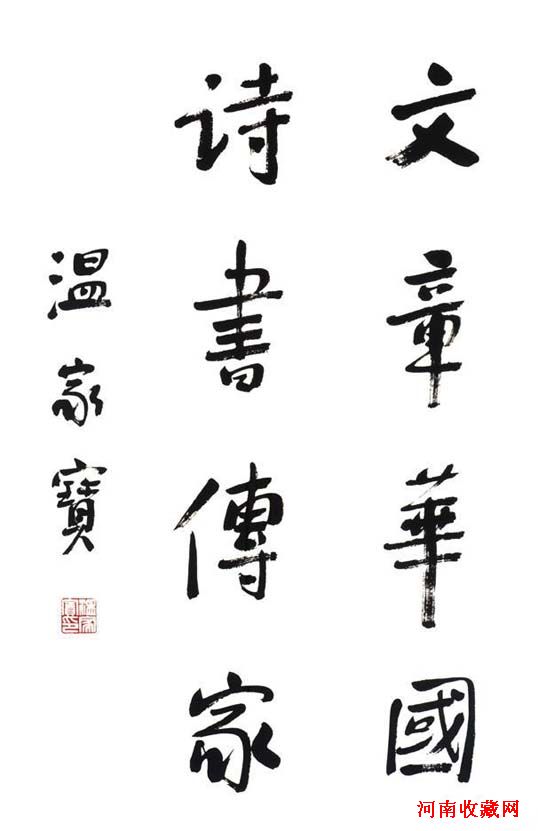 文章華國
诗書傳家
温家寶
河南收藏网